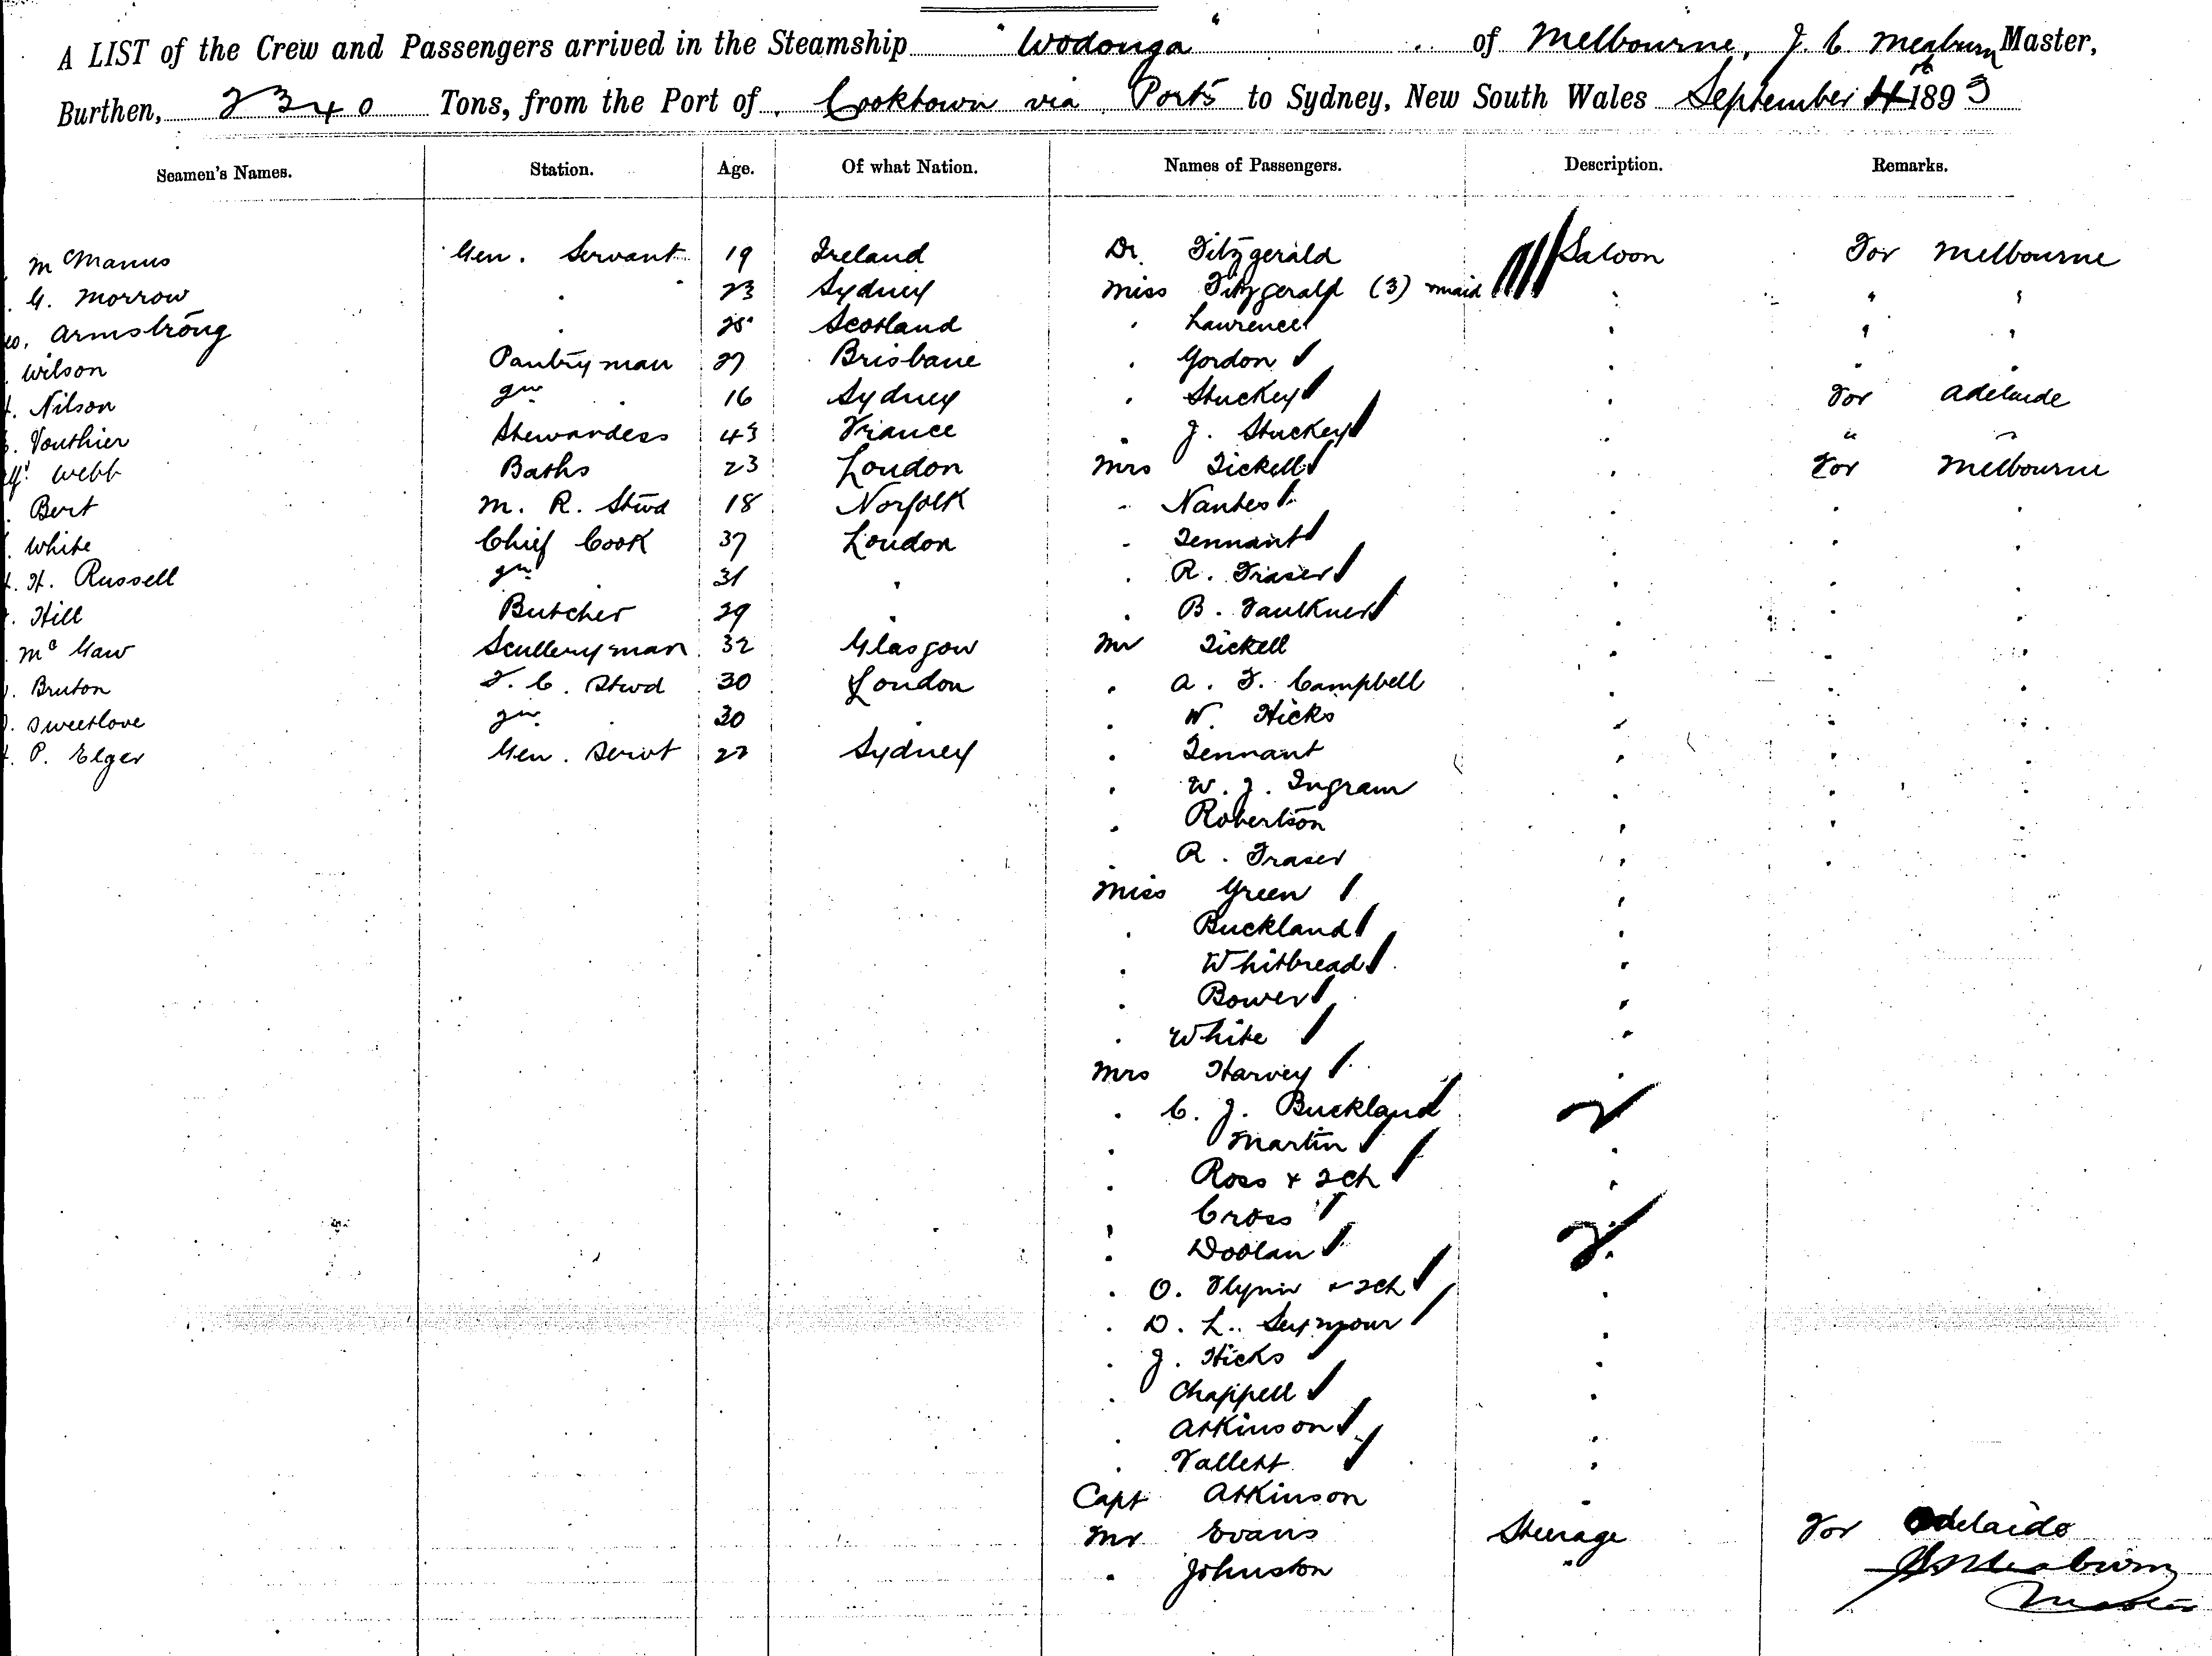 A LIST of the Crew and Passengers arrived in the Steamship "Wodonga" of Melbourne, J. C. Meaburn Master,
Burthen, 2340 Tons, from the Port of Cooktown via Ports to Sydney, New South Wales September 4th 1893
Seamen's Names. Station. Age. Of what Nation. Names of Passengers. Description. Remarks.
McManus Gen. Servant 19 Ireland Dr. Fitzgerald Saloon For Melbourne
G. Morrow " 23 Sydney Miss Fitzgerald (3) maid " " "
Armstrong " 25 Scotland " Lawrence " " "
Wilson Pantryman 27 Brisbane " Gordon " " "
Nilson " 16 Sydney " Stuckey " For Adelaide
Vouthier Stewardess 43 France " J. Stuckey " " "
Webb Baths 23 London Mrs Tickell " For Melbourne
Bert M. R. Stwd 18 Norfolk " Nantes " " "
White Chief Cook 37 London " Tennant " " "
H. Russell 2nd " 31 " " R. Fraser " " "
Hill Butcher 29 " " B. Faulkner " " "
Mc Gaw Sculleryman 32 Glasgow Mr Tickell " " "
Bruton F. C. Stwd 30 London " A. F. Campbell " " "
Sweetlove 2nd " 30 " " W. Hicks " " "
P. Elger Gen. Servt 22 Sydney " Tennant " " "
" W. J. Ingram " " "
" Robertson " " "
" R. Fraser " " "
Miss Green "
" Buckland "
" Whitbread "
" Bower "
" White "
Mrs Harvey "
" C. J. Buckland
" Martin "
" Ross & 2 ch "
" Cross
" Doolan "
" O. Flynn & 2 ch "
" D. L. Seymour "
" J. Hicks "
" Chappell "
" Atkinson "
" Vallett "
Capt Atkinson "
Mr Evans Steerage For Adelaide
" Johnston "
J C Meaburn
Master